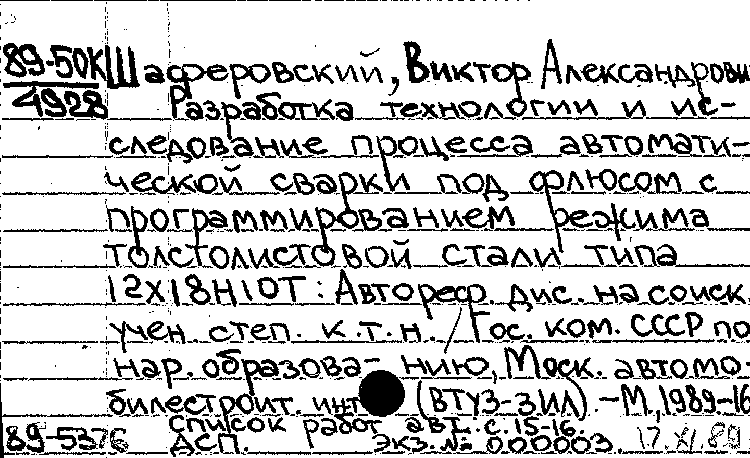 89-50К Шаферовский, Виктор Александрови
4928 Разработка технологии и ис-
следование процесса автомати-
ческой сварки под флюсом с
программированием режима
толстолистовой стали типа
12Х18Н10Т: Автореф. дис. на соиск.
учен. степ. к.т.н. / Гос. ком. СССР по
нар. образова- нию, Моск. автомо-
билестроит. инт (ВТУЗ-ЗИЛ). -М., 1989-16
список работ авт. с. 15-16.
89-5376 ДСП. Экз. № 000003. 17.XI.89